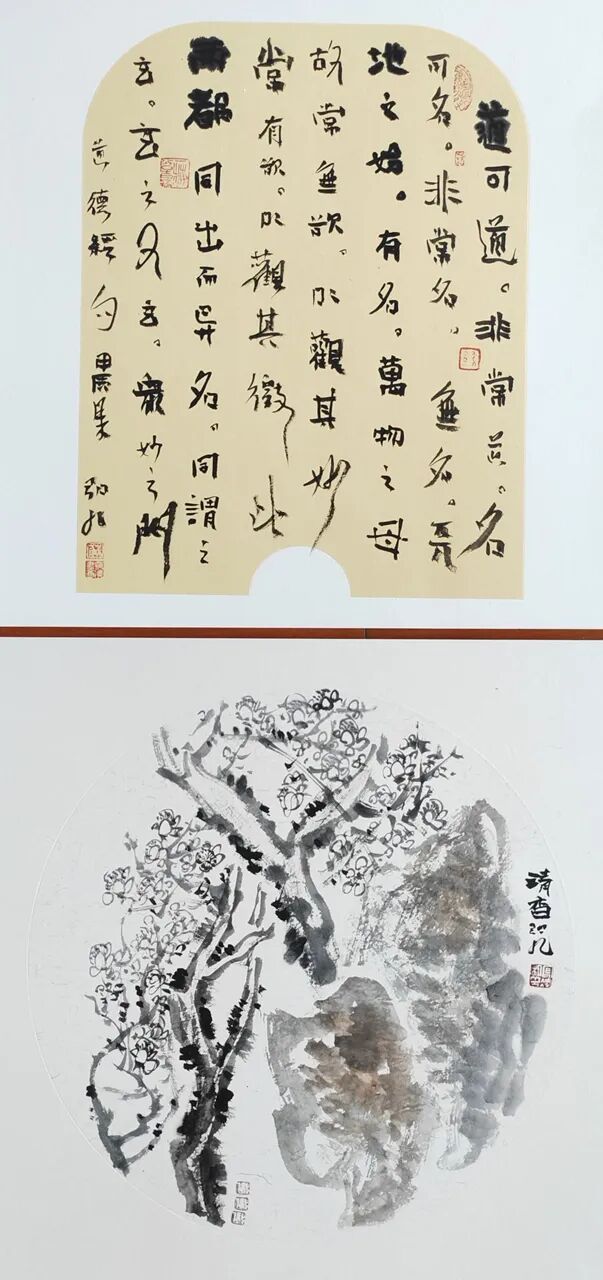 道可道。非常道。名
可名。非常名。無名。天
地之始。有名。萬物之母
故常無欲。以觀其妙
常有欲。以觀其徼此
兩都同出而異名。同謂之
玄。玄之又玄。衆妙之門
道德經句 甲辰
清香